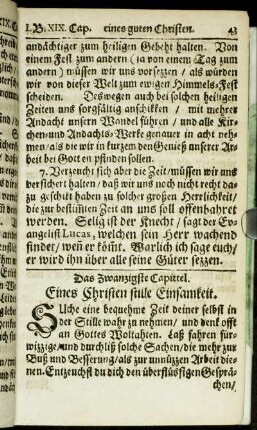 I. B. XIX. Cap. eines guten Christen. 43
andächtiger zum heiligen Gebeht halten. Von
einem Fest zum andern (ja von einem Tag zum
andern) müssen wir uns vorsetzen / als würden
wir von dieser Welt zum ewigen Himmels-Fest
scheiden. Deswegen auch bei solchen heiligen
Zeiten uns sorgfältig anschikken / mit mehrer
Andacht unsern Wandel führen / und alle Kir-
chen-und Andachts-Werke genauer in acht neh-
men / als die wir in kurzem den Genieß unserer Ar-
beit bei Gott en pfinden sollen.
7. Verzeucht sich aber die Zeit / müssen wir uns
versichert halten / daß wir uns noch nicht recht da-
zu geschikt haben zu solcher großen Herrlichkeit /
die zur bestimten Zeit an uns soll offenbahret
werden. Selig ist der Knecht / sagt der Ev-
angelist Lucas, welchen sein Herr wachend
findet / wen̄ er kömt. Warlich ich sage euch /
er wird ihn über alle seine Güter setzen.
Das Zwanzigste Capittel.
Eines Christen stille Einsamkeit.
Suche eine bequehme Zeit deiner selbst in
der Stille wahr zu nehmen / und denk offt
an Gottes Woltahten. Laß fahren für-
wizzige / und durchliß solche Sachen / die mehr zur
Buß und Besserung / als zur unnüzzen Arbeit die-
nen. Entzeuchst du dich den überflüssigen Gesprä-
chen /